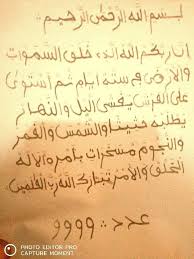 بسم الله الرحمن الرحيم
ان ربكم الله الذى خلق السموات
والارض فى ستة ايام ثم استوى
على العرش يغشى اليل والنهار
يطلبه حثيثا والشمس والقمر
والنجوم مسخرات بأمره الا له
الخلق والامر تبارك الله رب العلمين
عدد: ٩٩٩٩
PHOTO EDITOR PRO
CAPTURE MOMENT